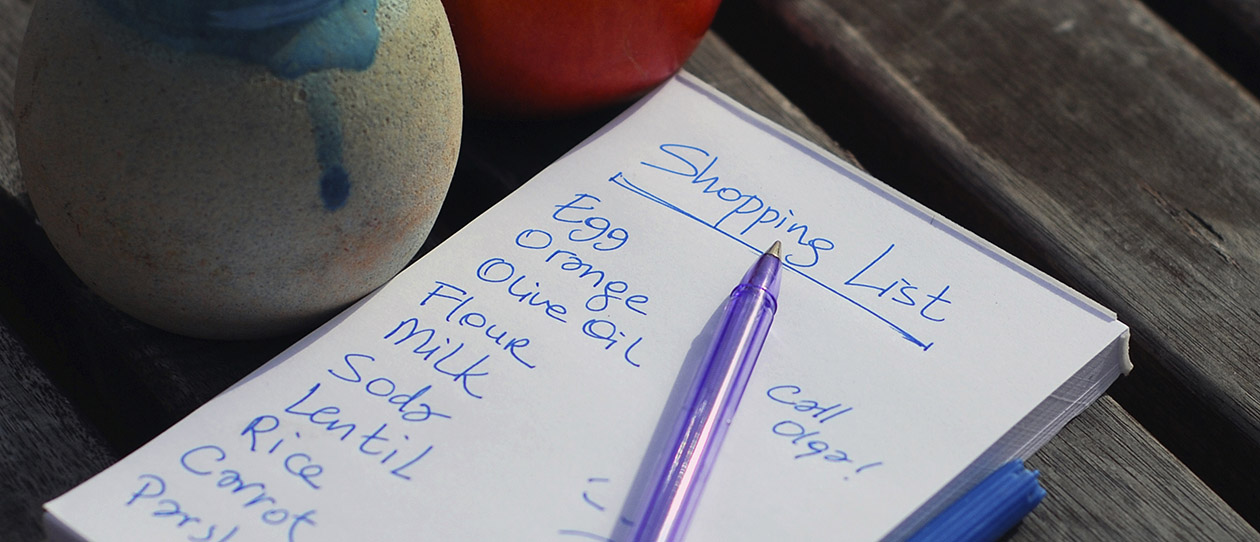 Shopping List
Egg
Orange
Olive Oil
Flour
Milk
Soda
Lentil
Rice
Carrot
call
olga!